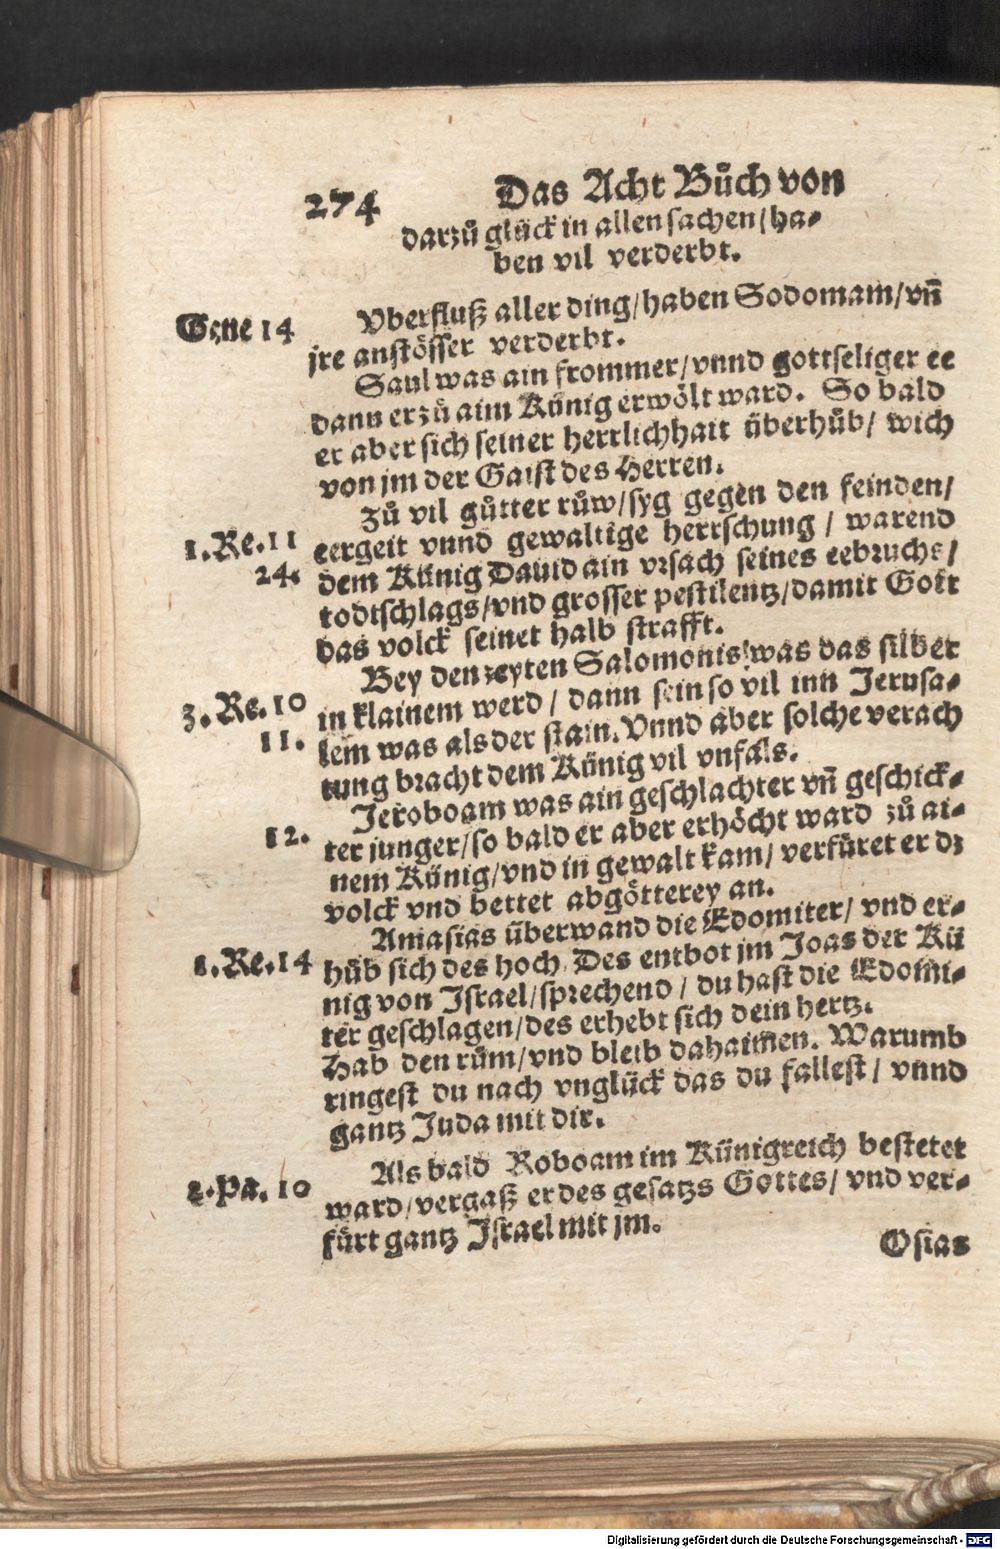 274 Das Acht Bůch von
darzů glück in allen sachen/ ha⸗
ben vil verderbt.
Gene 14 Vberfluß aller ding/ haben Sodomam/ vñ
jre anstösser verderbt.
Saul was ain frommer/ vnnd gottseliger ee
dann er zů aim Künig erwölt ward. So bald
er aber sich seiner herrlichhait überhůb/ wich
von jm der Gaist des Herren.
Zů vil gůtter růw/ syg gegen den feinden/
1.Re.11 eergeit vnnd gewaltige herrschung / warend
24. dem Künig Dauid ain vrsach seines eebruchs/
todtschlags/ vnd grosser pestilentz/ damit Gott
das volck seinet halb strafft.
Bey den zeyten Salomonis/ was das silber
3.Re.10 in klainem werd / dann sein so vil inn Jerusa⸗
11. lem was als der stain. Vnnd aber solche verach
tung bracht dem Künig vil vnfals.
Jeroboam was ain geschlachter vñ geschick⸗
12. ter junger/ so bald er aber erhöcht ward zů ai⸗
nem Künig/ vnd in gewalt kam/ verfüret er dz
volck vnd bettet abgötterey an.
Amasias überwand die Edomiter/ vnd er⸗
1.Re.14 hůb sich des hoch. Des entbot jm Joas der Kü
nig von Israel/ sprechend / du hast die Edomi⸗
ter geschlagen/ des erhebt sich dein hertz.
Hab den rům/ vnd bleib dahaimen. Warumb
ringest du nach vnglück das du fallest / vnnd
gantz Juda mit dir.
Als bald Roboam im Künigreich bestetet
2.Pa.10 ward/ vergaß er des gesatzs Gottes/ vnd ver⸗
fürt gantz Israel mit jm.
Osias
Digitalisierung gefördert durch die Deutsche Forschungsgemeinschaft - DFG